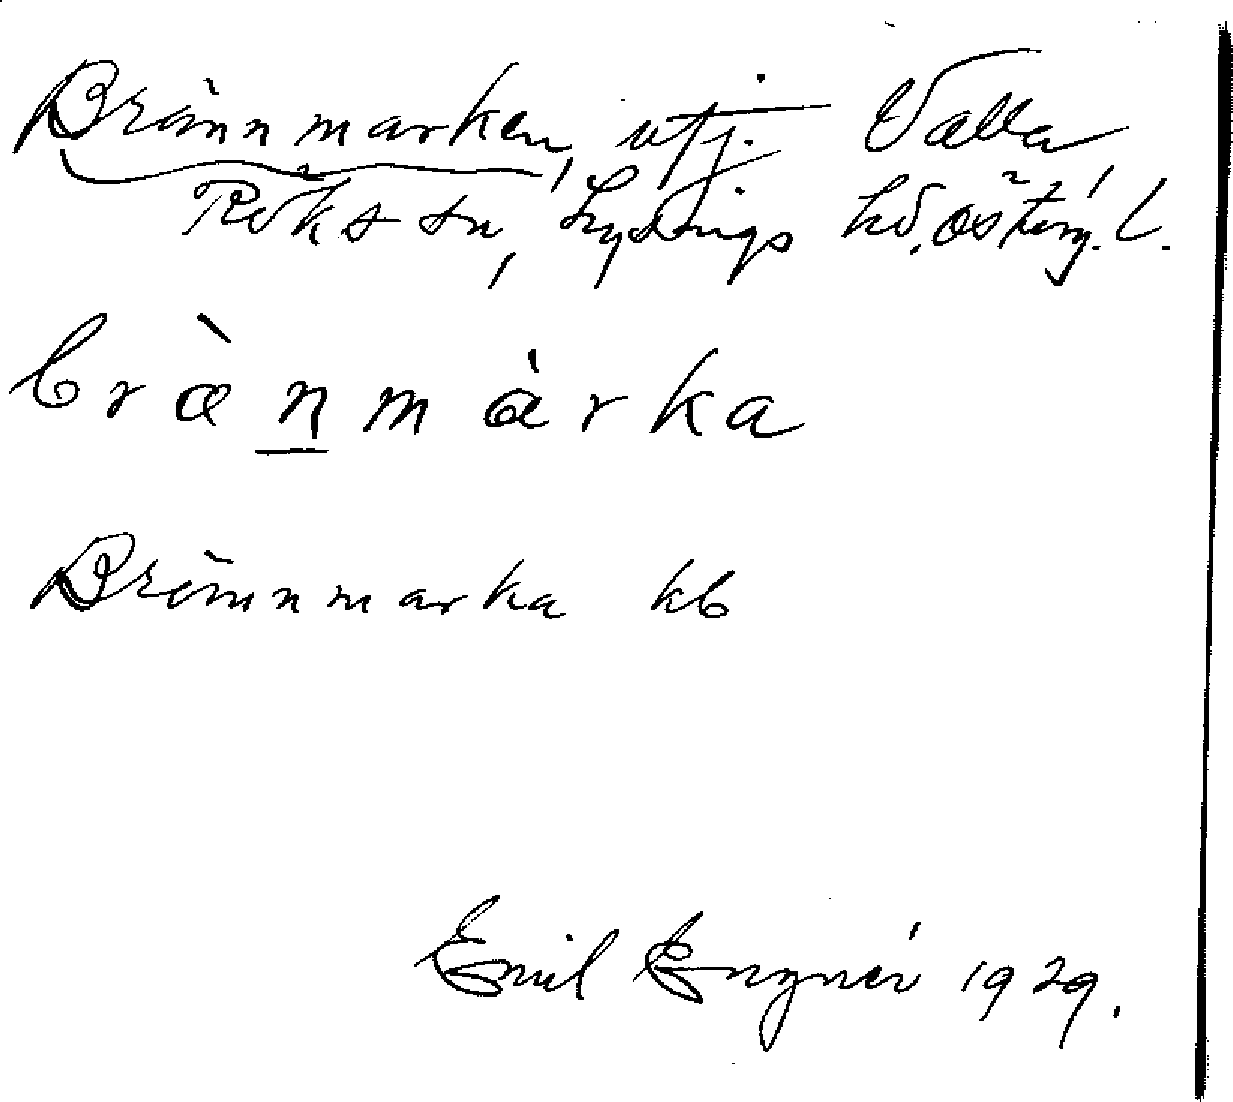 Brännmarken, utj. Valla
Röks sn, Lysings hd, Österg. l.
bræ̀nmàrka
Brännmarka kb
Emil Engnér 1929.